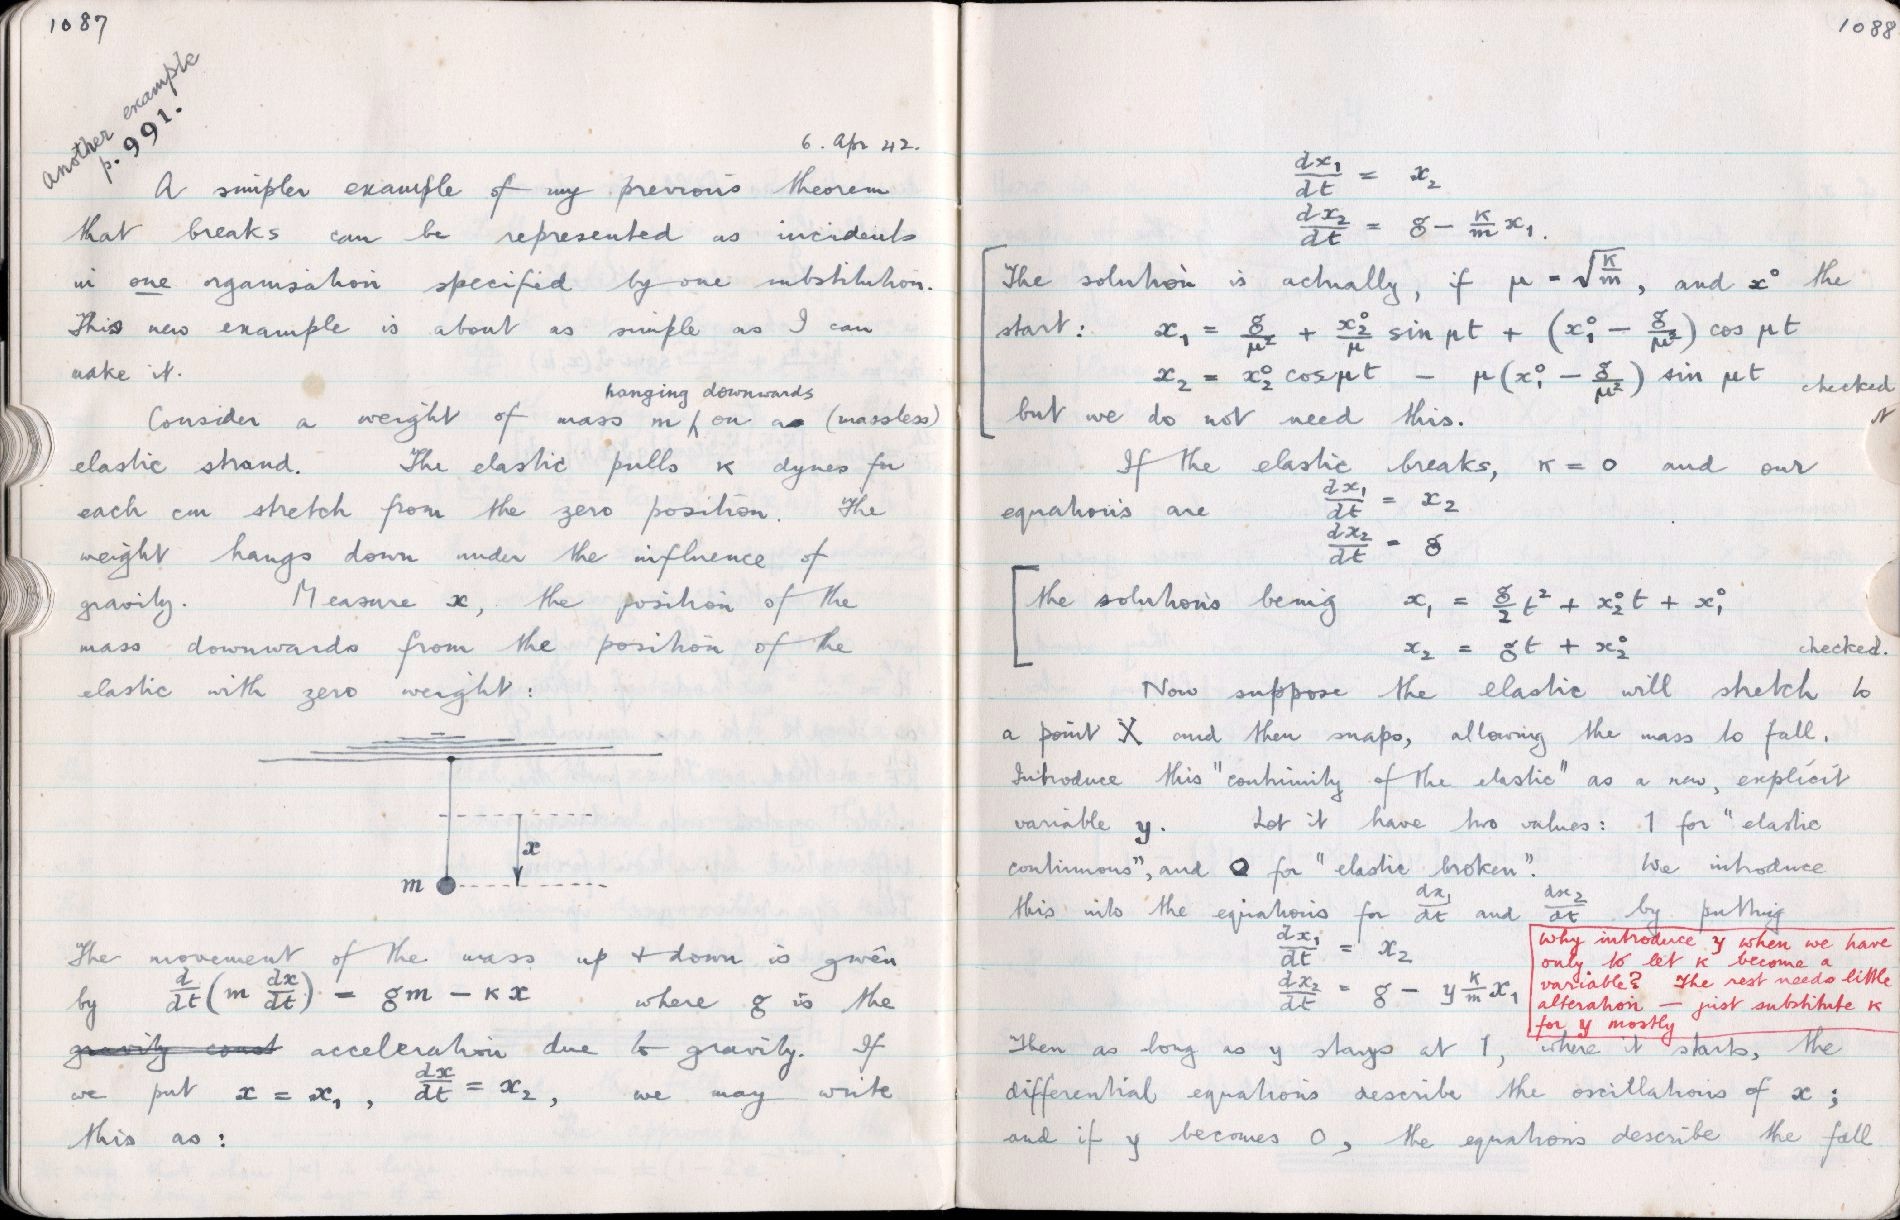 1087
another example
p. 991.
6. Apr 42.
A simpler example of my previous theorem
that breaks can be represented as incidents
in one organisation specified by one substitution.
This new example is about as simple as I can
make it.
hanging downwards
Consider a weight of mass m on a (massless)
elastic strand. The elastic pulls κ dynes for
each cm stretch from the zero position. The
weight hangs down under the influence of
gravity. Measure x, the position of the
mass downwards from the position of the
elastic with zero weight:
x
m
The movement of the mass up & down is given
by d/dt (m dx/dt) = gm − κx where g is the
gravity const acceleration due to gravity. If
we put x = x₁, dx/dt = x₂, we may write
this as:
1088
dx₁/dt = x₂
dx₂/dt = g − κ/m x₁.
The solution is actually, if μ = √(κ/m), and x⁰ the
start: x₁ = g/μ² + x₂⁰/μ sin μt + (x₁⁰ − g/μ²) cos μt
x₂ = x₂⁰ cos μt − μ(x₁⁰ − g/μ²) sin μt checked
but we do not need this. it
If the elastic breaks, κ = 0 and our
equations are dx₁/dt = x₂
dx₂/dt = g
the solutions being x₁ = g/2 t² + x₂⁰t + x₁⁰
x₂ = gt + x₂⁰ checked.
Now suppose the elastic will stretch to
a point X and then snaps, allowing the mass to fall.
Introduce this "continuity of the elastic" as a new, explicit
variable y. Let it have two values: 1 for "elastic
continuous", and 0 for "elastic broken". We introduce
this into the equations for dx₁/dt and dx₂/dt by putting
dx₁/dt = x₂
dx₂/dt = g − y κ/m x₁
Why introduce y when we have
only to let κ become a
variable? The rest needs little
alteration — just substitute κ
for y mostly
Then as long as y stays at 1, where it starts, the
differential equations describe the oscillations of x;
and if y becomes 0, the equations describe the fall